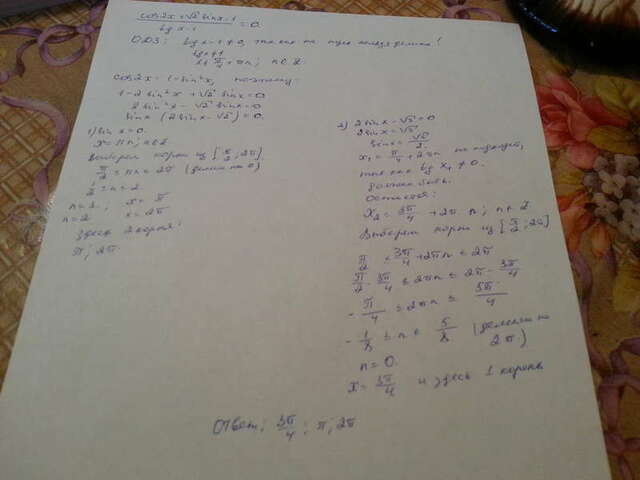 cos2x+√2 sinx-1 / tg x-1 = 0.
ОДЗ: tg x-1≠0, так как на нуль нельзя делить!
tg x≠1
x≠ π/4 + πn; n∈Z.
cos2x = 1-sin²x, поэтому:
1-2sin²x+√2 sinx=0
2sin²x-√2 sinx=0
sinx (2sinx-√2)=0.
1) sin x=0.
x=πn; n∈Z
Выберем корни из [π/2; 2π]
π/2 ≤ πn ≤ 2π (делим на π)
1/2 ≤ n ≤ 2.
n=1; x=π
n=2 x=2π
Здесь 2 корня:
π; 2π.
2) 2sinx-√2=0
2sinx=√2
sinx=√2/2.
x₁=π/4+2πn не подходит,
так как tg x, ≠0.
должен быть.
Остается:
x₂=3π/4+2πn; n∈Z
Выберем корни из [π/2; 2π]
π/2 ≤ 3π/4+2πn ≤ 2π
π/2-3π/4 ≤ 2πn ≤ 2π-3π/4
-π/4 ≤ 2πn ≤ 5π/4
-1/8 ≤ n ≤ 5/8 (делим на
2π)
n=0.
x=3π/4 и здесь 1 корень
Ответ: 3π/4; π; 2π